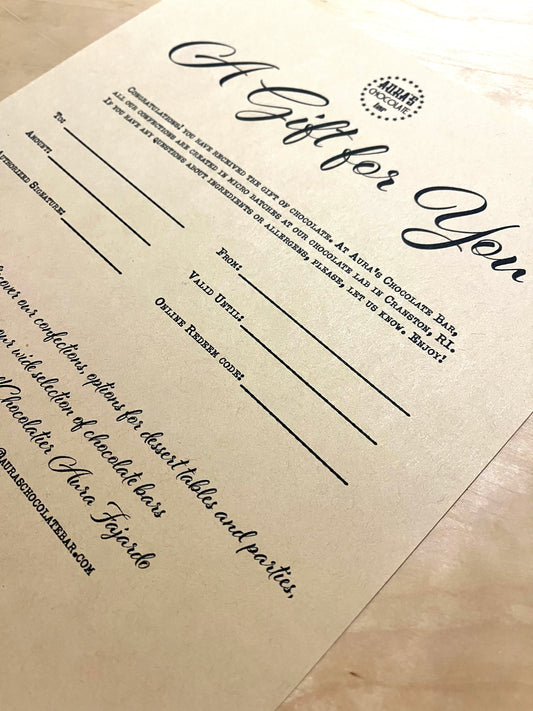 A Gift for You
AURA'S
CHOCOLATE
BAR
Congratulations! You have received the gift of chocolate. At Aura's Chocolate Bar,
all our confections are created in micro batches at our chocolate lab in Cranston, RI.
If you have any questions about ingredients or allergens, please, let us know. Enjoy!
To:
From:
Amount:
Valid Until:
Authorized Signature:
Online Redeem code:
iscover our confections options for dessert tables and parties,
our wide selection of chocolate bars
Chocolatier Aura Fajardo
@auraschocolatebar.com